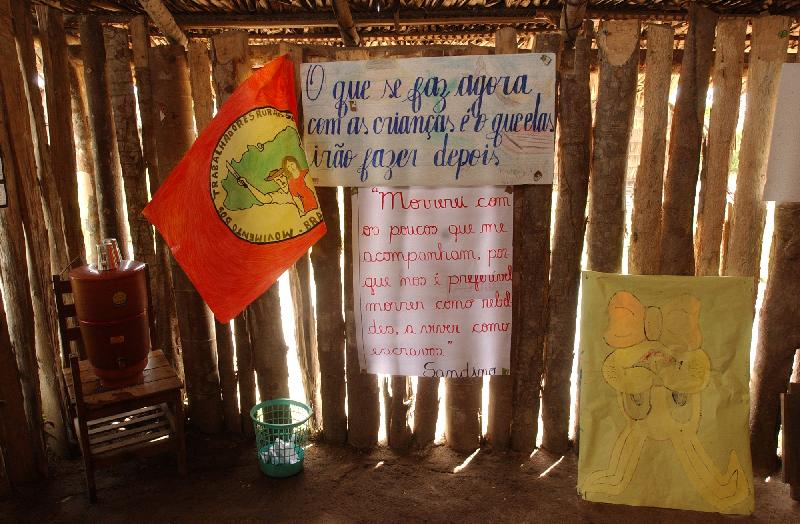 MOVIMENTO DOS TRABALHADORES RURAIS
O que se faz agora
com as crianças é o que elas
irão fazer depois
"Morrerei com
os poucos que me
acompanham, por
que nos é preferível
morrer como rebel
des, a viver como
escravos"
Sandino